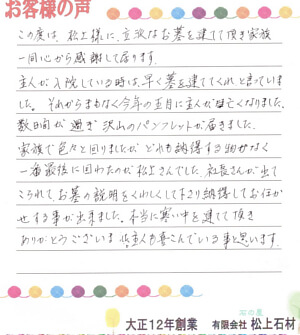 お客様の声
この度は、松上様に、立派なお墓を建てて頂き家族
一同心から感謝して居ります。
主人が入院している時は、早く墓を建ててくれと言っていま
した。それからまもなく今年の五月に主人が亡くなりました。
数日間が過ぎ沢山のパンフレットが届きました。
家族で色々と回りましたがどれも納得する物がなく
一番最後に回わたのが松上さんでした。社長さんが出て
こられて、お墓の説明をくわしくして下さり納得してお任か
せする事が出来ました。本当に寒い中を建てて頂き
ありがとうございます 主人も喜こんでいる事と思います。
石の屋
大正12年創業 有限会社 松上石材